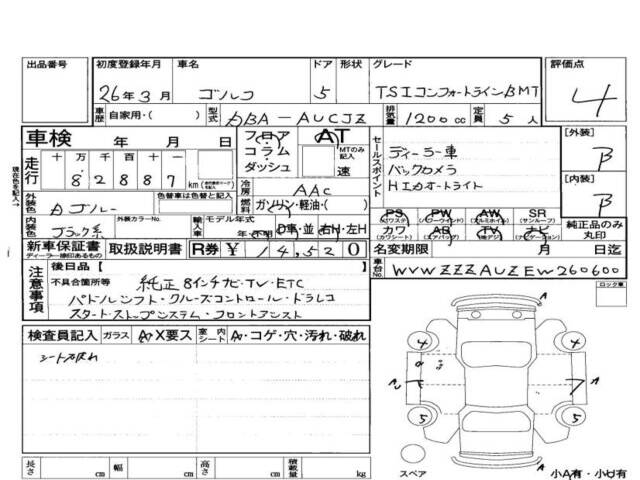 出品番号 初度登録年月 車名 ドア 形状 グレード 評価点
26年3月 ゴルフ 5 TSIコンフォートラインBMT 4
車歴 自家用・( ) 型式 DBA-AUCJZ 排気量 1200cc 定員 5人
車検 年 月 日 フロア コラム ダッシュ AT MTのみ記入 速 セールスポイント [外装]
走行 十 万 千 百 十 一 ディーラー車 B
8 2 8 8 7 km バックカメラ
現在色を記入→ 冷房 AAC Hエカオートライト [内装]
外装色 Dブルー 色替車は色替と記入 燃料 ガソリン・軽油・( ) B
内装色 ブラック系 外装カラーNo. 輸入車 モデル年式 PS (パワステ) PW (パワーウインド) AW (アルミホイル) SR (サンルーフ)
年・不明 D車・並 右H・左H カワ (カワシート) AB (エアバッグ) TV ナビ (ナビゲーション) 純正品のみ丸印
新車保証書 ディーラー捺印あるもの 取扱説明書 R券 ¥ 14,520 名変期限 月 日迄
注意事項 後日品( ) 車台No. WVWZZZAUZEW260600
不具合箇所等 純正 8インチナビ・TV・ETC ロック車
パドルシフト・クルーズコントロール・ドラレコ
スタートストップシステム・フロントアシスト
検査員記入 ガラス A・X要ス 室内シート A・コゲ・穴・汚れ・破れ
シート
4 4
A A A
5 5
長さ cm 幅 cm 高さ cm 積載量 kg スペア 小A有・小U有